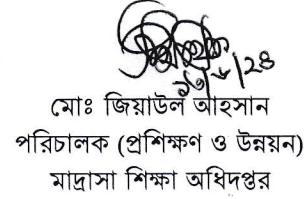 মোঃ জিয়াউল আহসান
পরিচালক (প্রশিক্ষণ ও উন্নয়ন)
মাদ্রাসা শিক্ষা অধিদপ্তর